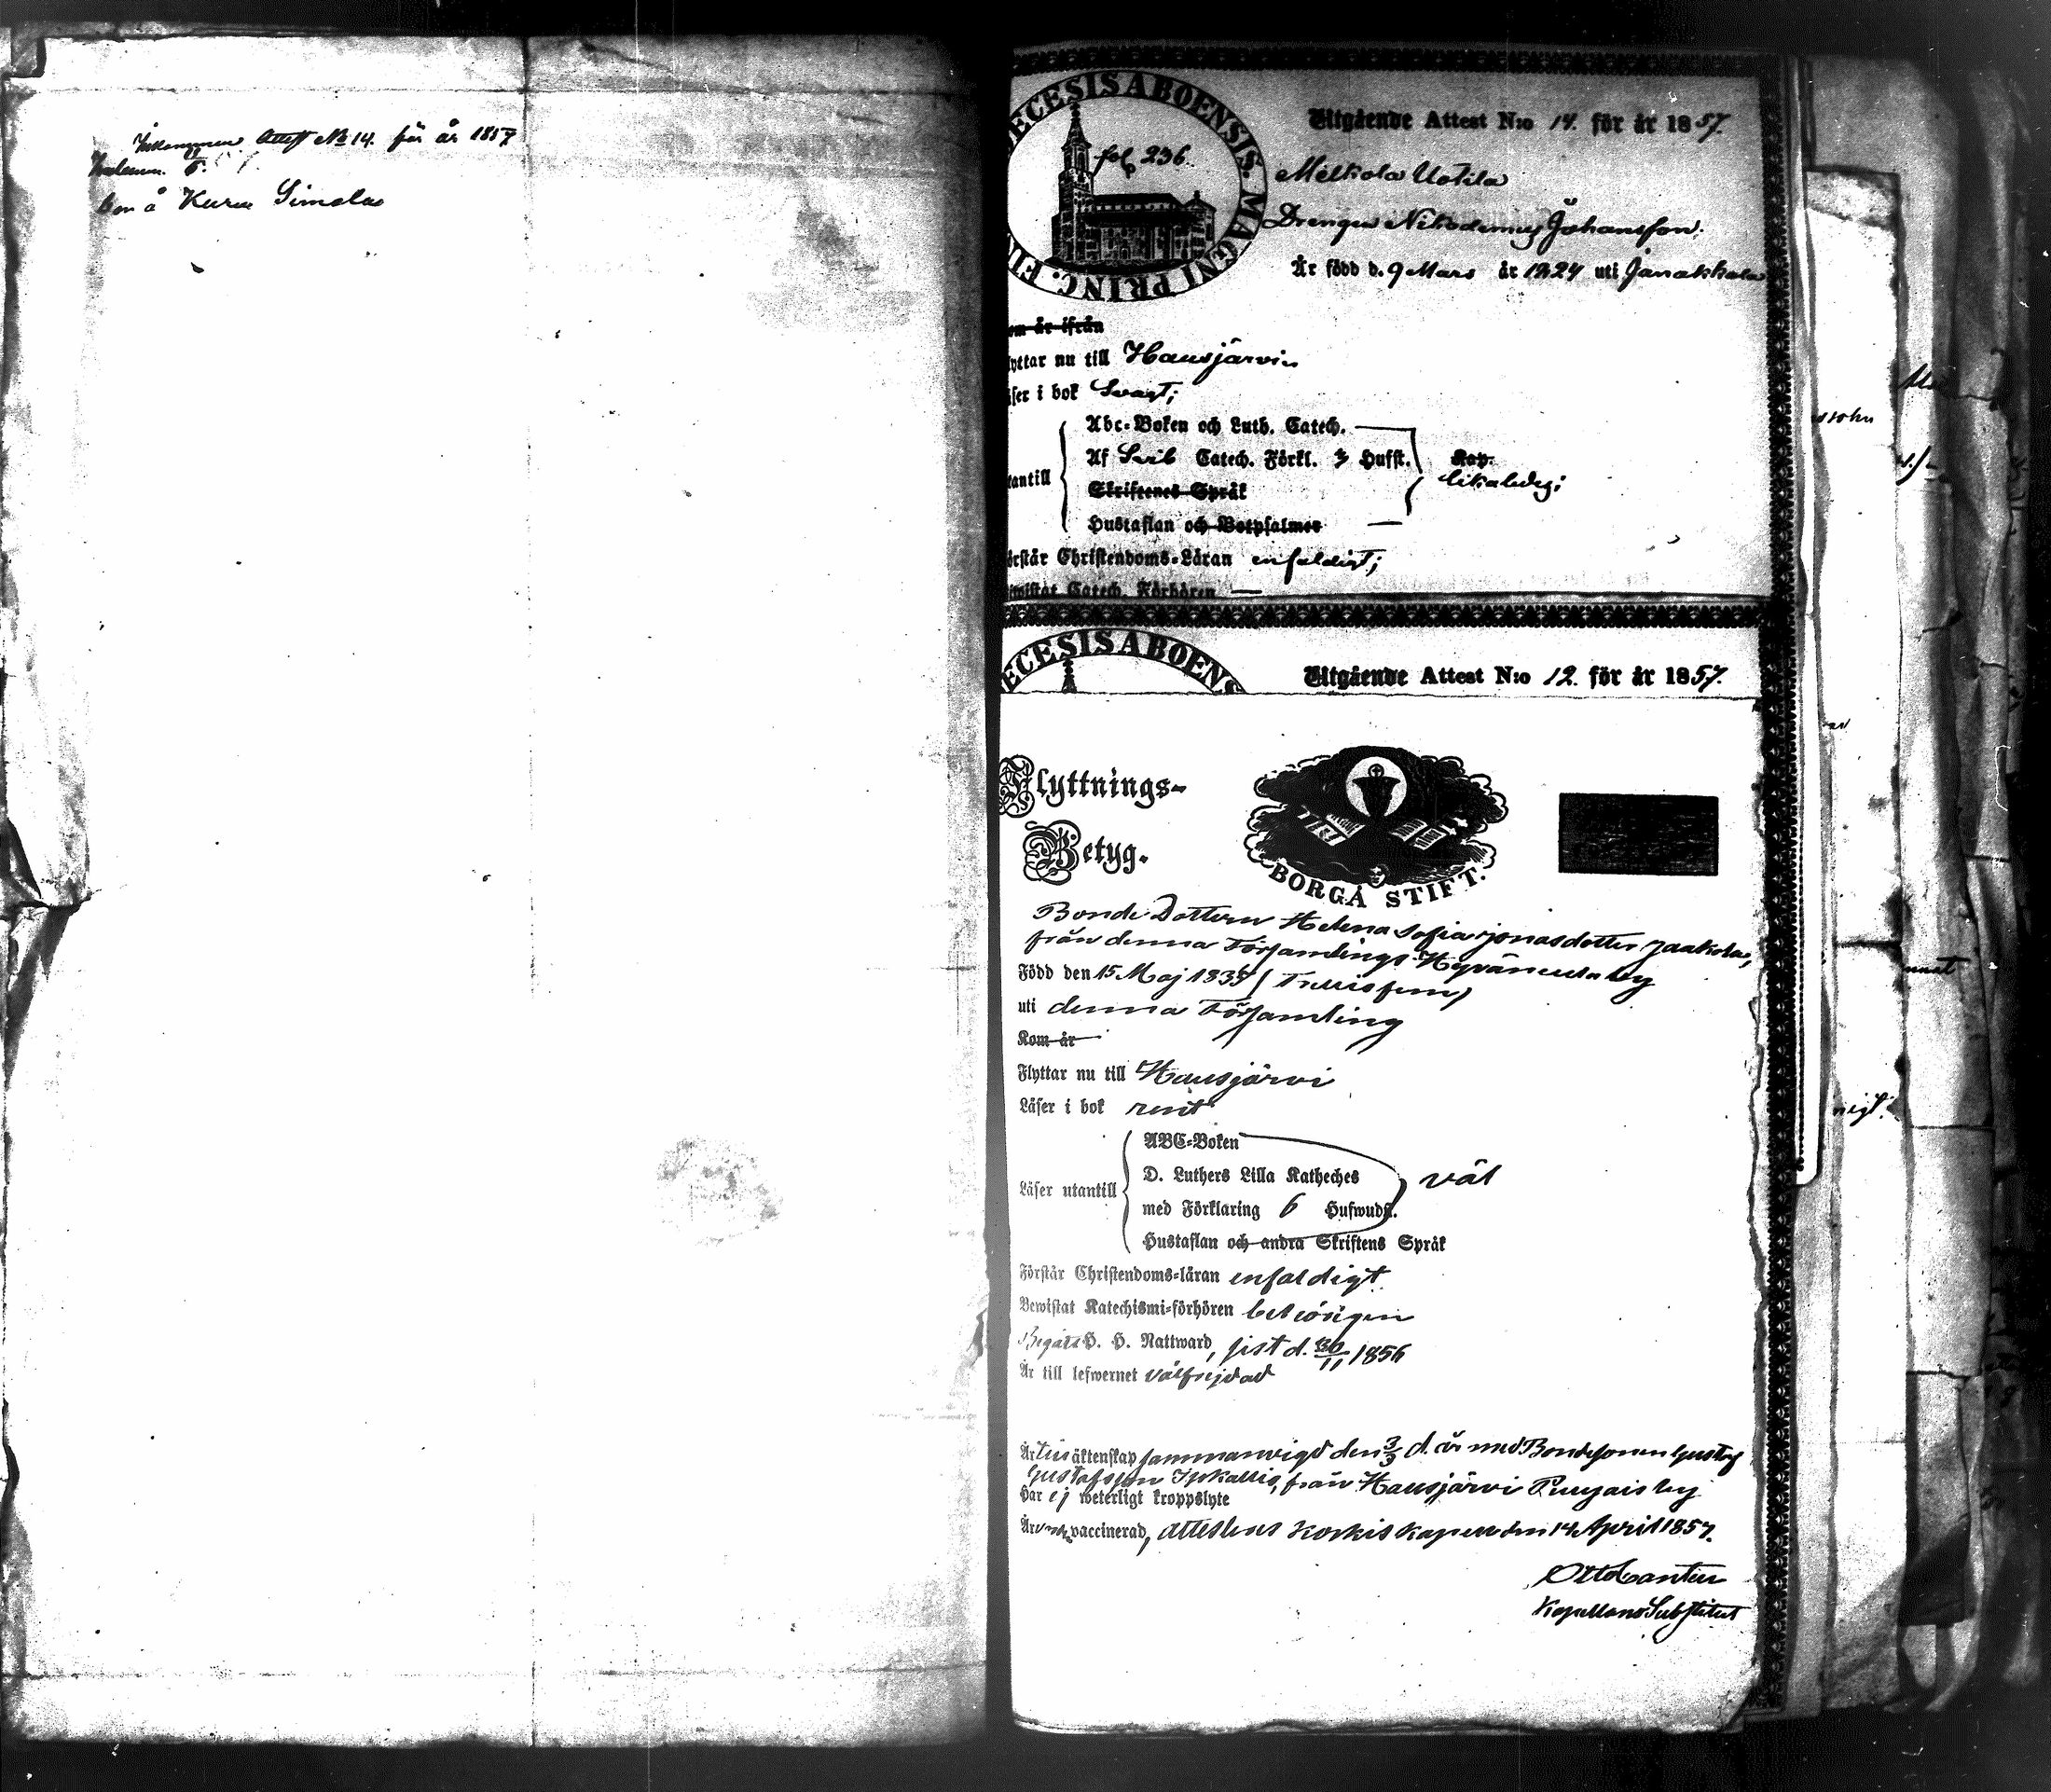 Inkommen Attest No 14. för år 1857
bon å Kuru Simola
DIOECESIS ABOENSIS. MAGNI PRINC. FIN
fol 236.
Utgående Attest N:o 14. för år 1857.
Melkola Uotila
Drengen Nikodemus Johansson.
Är född d. 9 Mars år 1824 uti Janakkala
om är ifrån
lyttar nu till Hausjärvi
äser i bok Svagt;
Abc-Boken och Luth. Catech.
Af Svib Catech. Förkl. 3 Hufst. Kap.
tantill
likaledes;
Skriftenes Språk
Hustaflan och Botpsalmer
örstår Christendoms-Läran enfaldigt;
iwistat Catech. Förhören —
ECESIS ABOENS
Utgående Attest N:o 12. för år 1857.
Flyttnings-
Betyg.
BORGÅ STIFT.
Bonde Dottern Helena Sofia Jonasdotter Jaakola,
från denna Församlings Hyvänenula by
Född den 15 Maj 1835 (Trettifem)
uti denna Församling
Kom år
Flyttar nu till Hausjärvi
Läser i bok rent
ABC-Boken
D. Luthers Lilla Katheches
väl
Läser utantill
med Förklaring 6 Hufwudst.
Hustaflan och andra Skriftens Språk
Förstår Christendoms-läran enfaldigt
Bewistat Katechismi-förhören behörigen
Begått H. H. Nattward, sist d. 30/11 1856
Är till lefwernet välfrejdad
Är till äktenskap sammanvigd den 3/3 d. år med Bondesonen Gustaf
Gustafsson Ypkallis, från Hausjärvi Puujais by
Har ej weterligt kroppslyte
Är vaccinerad, attesteras Koskis Kapell den 14 April 1857.
Otto Canten
Kapellans Substitut